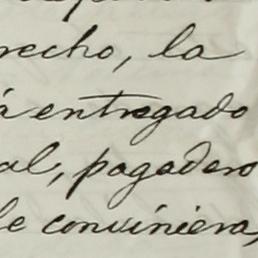 recho, la
á entregado
al, pagadero
le conviniera,